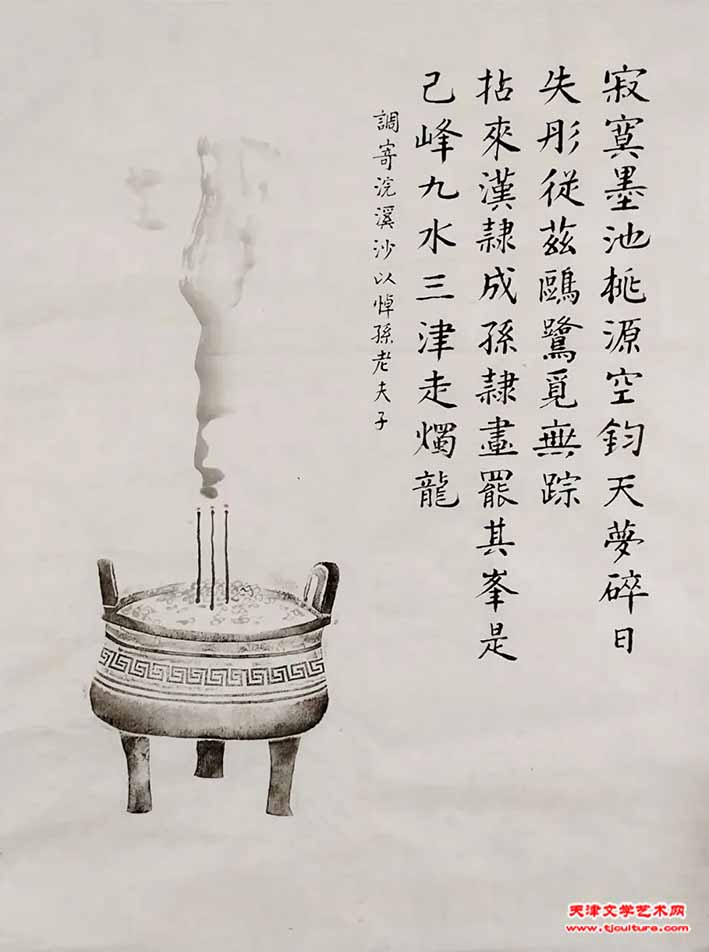 寂寞墨池桃源空鈞天夢碎日
失彤從茲鷗鷺覓無踪
拈來漢隸成孫隸畫罷其峯是
己峰九水三津走燭龍
調寄浣溪沙以悼孫老夫子
天津文学艺术网
www.tjculture.com